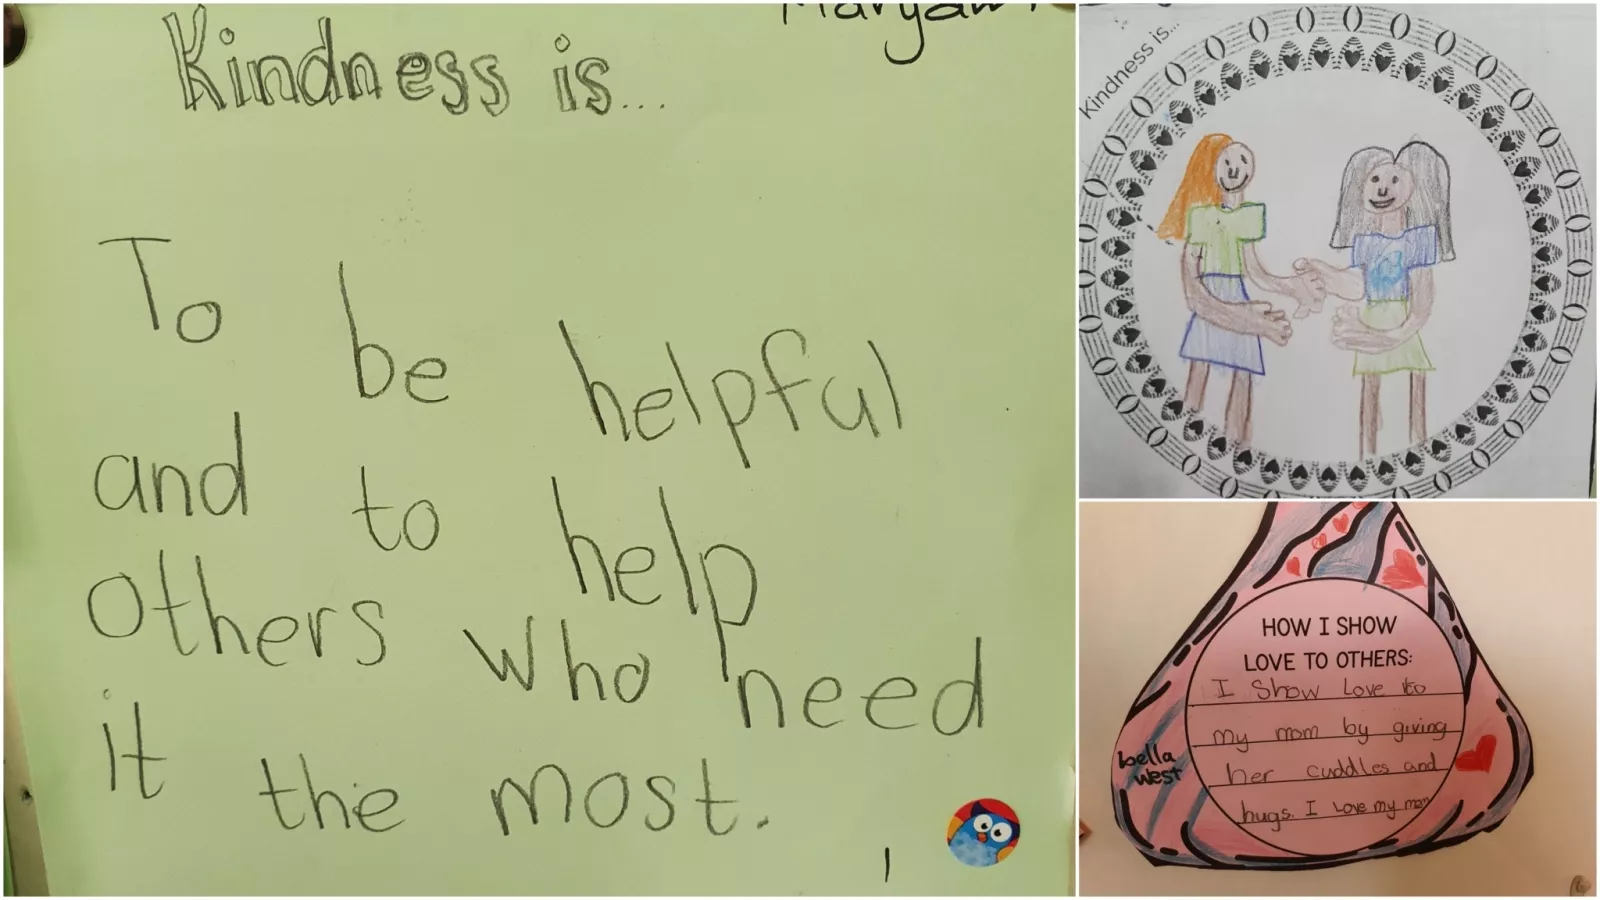 Kindness is...
To be helpful
and to help
others who need
it the most.
Kindness is...
HOW I SHOW
LOVE TO OTHERS:
I Show Love to
my mom by giving
her cuddles and
hugs. I Love my mom
bella
west